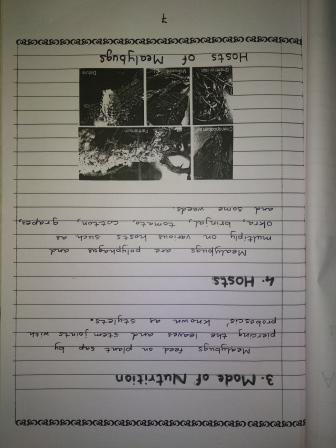 3. Mode of Nutrition
Mealybugs feed on plant sap by
piercing the leaves and stem joints with
proboscis' known as stylets.
4. Hosts
Mealybugs are polyphagus and
multiply on various hosts such as
Okra, brinjal, tomato, cotton, grapes,
and some weeds.
Parthenium
Datura
Hosts of Mealybugs
7